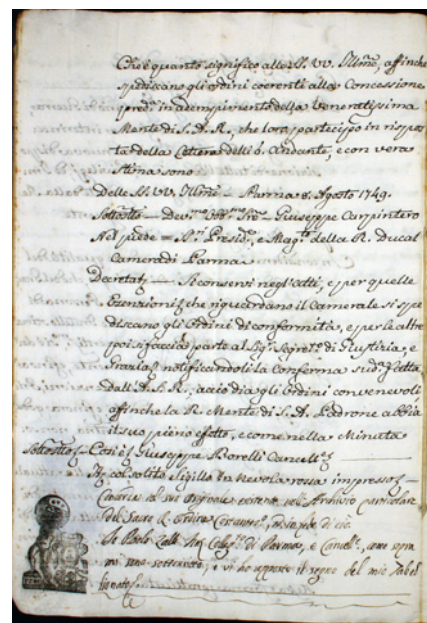 Ch'è quanto significo alle Ill. VV. Illme, affinche
spediscano gli ordini coerenti alla Concessione
predª in adempimento della Veneratissima
Mente di S. A. R., che loro partecipo in rispos
ta della Lettera delli 6. andante, e con vera
stima sono
Delle Ill. VV. Illme — Parma 8. Agosto 1749.
Sottostto — Giuseppe Carpintero
Nel piede — Presidte, e Magto della R. Ducal
Camera di Parma
Decretatz — Si conservi negl'Atti, e per quelle
Esenzioni che riguardano il Camerale si spe
discano gli Ordini di conformità, e per le altre
poi si faccia parte al Sigr Segretº di Giustizia, e
Grazia notificandoli la Conferma sudª fatta
dall'A. S. R., acciò dia gli Ordini convenevoli
affinche la R. Mente di S. A. Padrone abbia
il suo pieno effetto, e come nella Minuta
Giuseppe Borelli Cancellz
col solito Sigillo in Nevola rossa impressoz —
Cavaria dal suo Originale esistente nell'Archivio particolare
del Sacro R. Ordine Costantº, ed in fede di ciò
di Parma, e Cancellre, come sopra
mi sono sottoscritto, e vi ho apposto il segno del mio Tabel
lionatoz